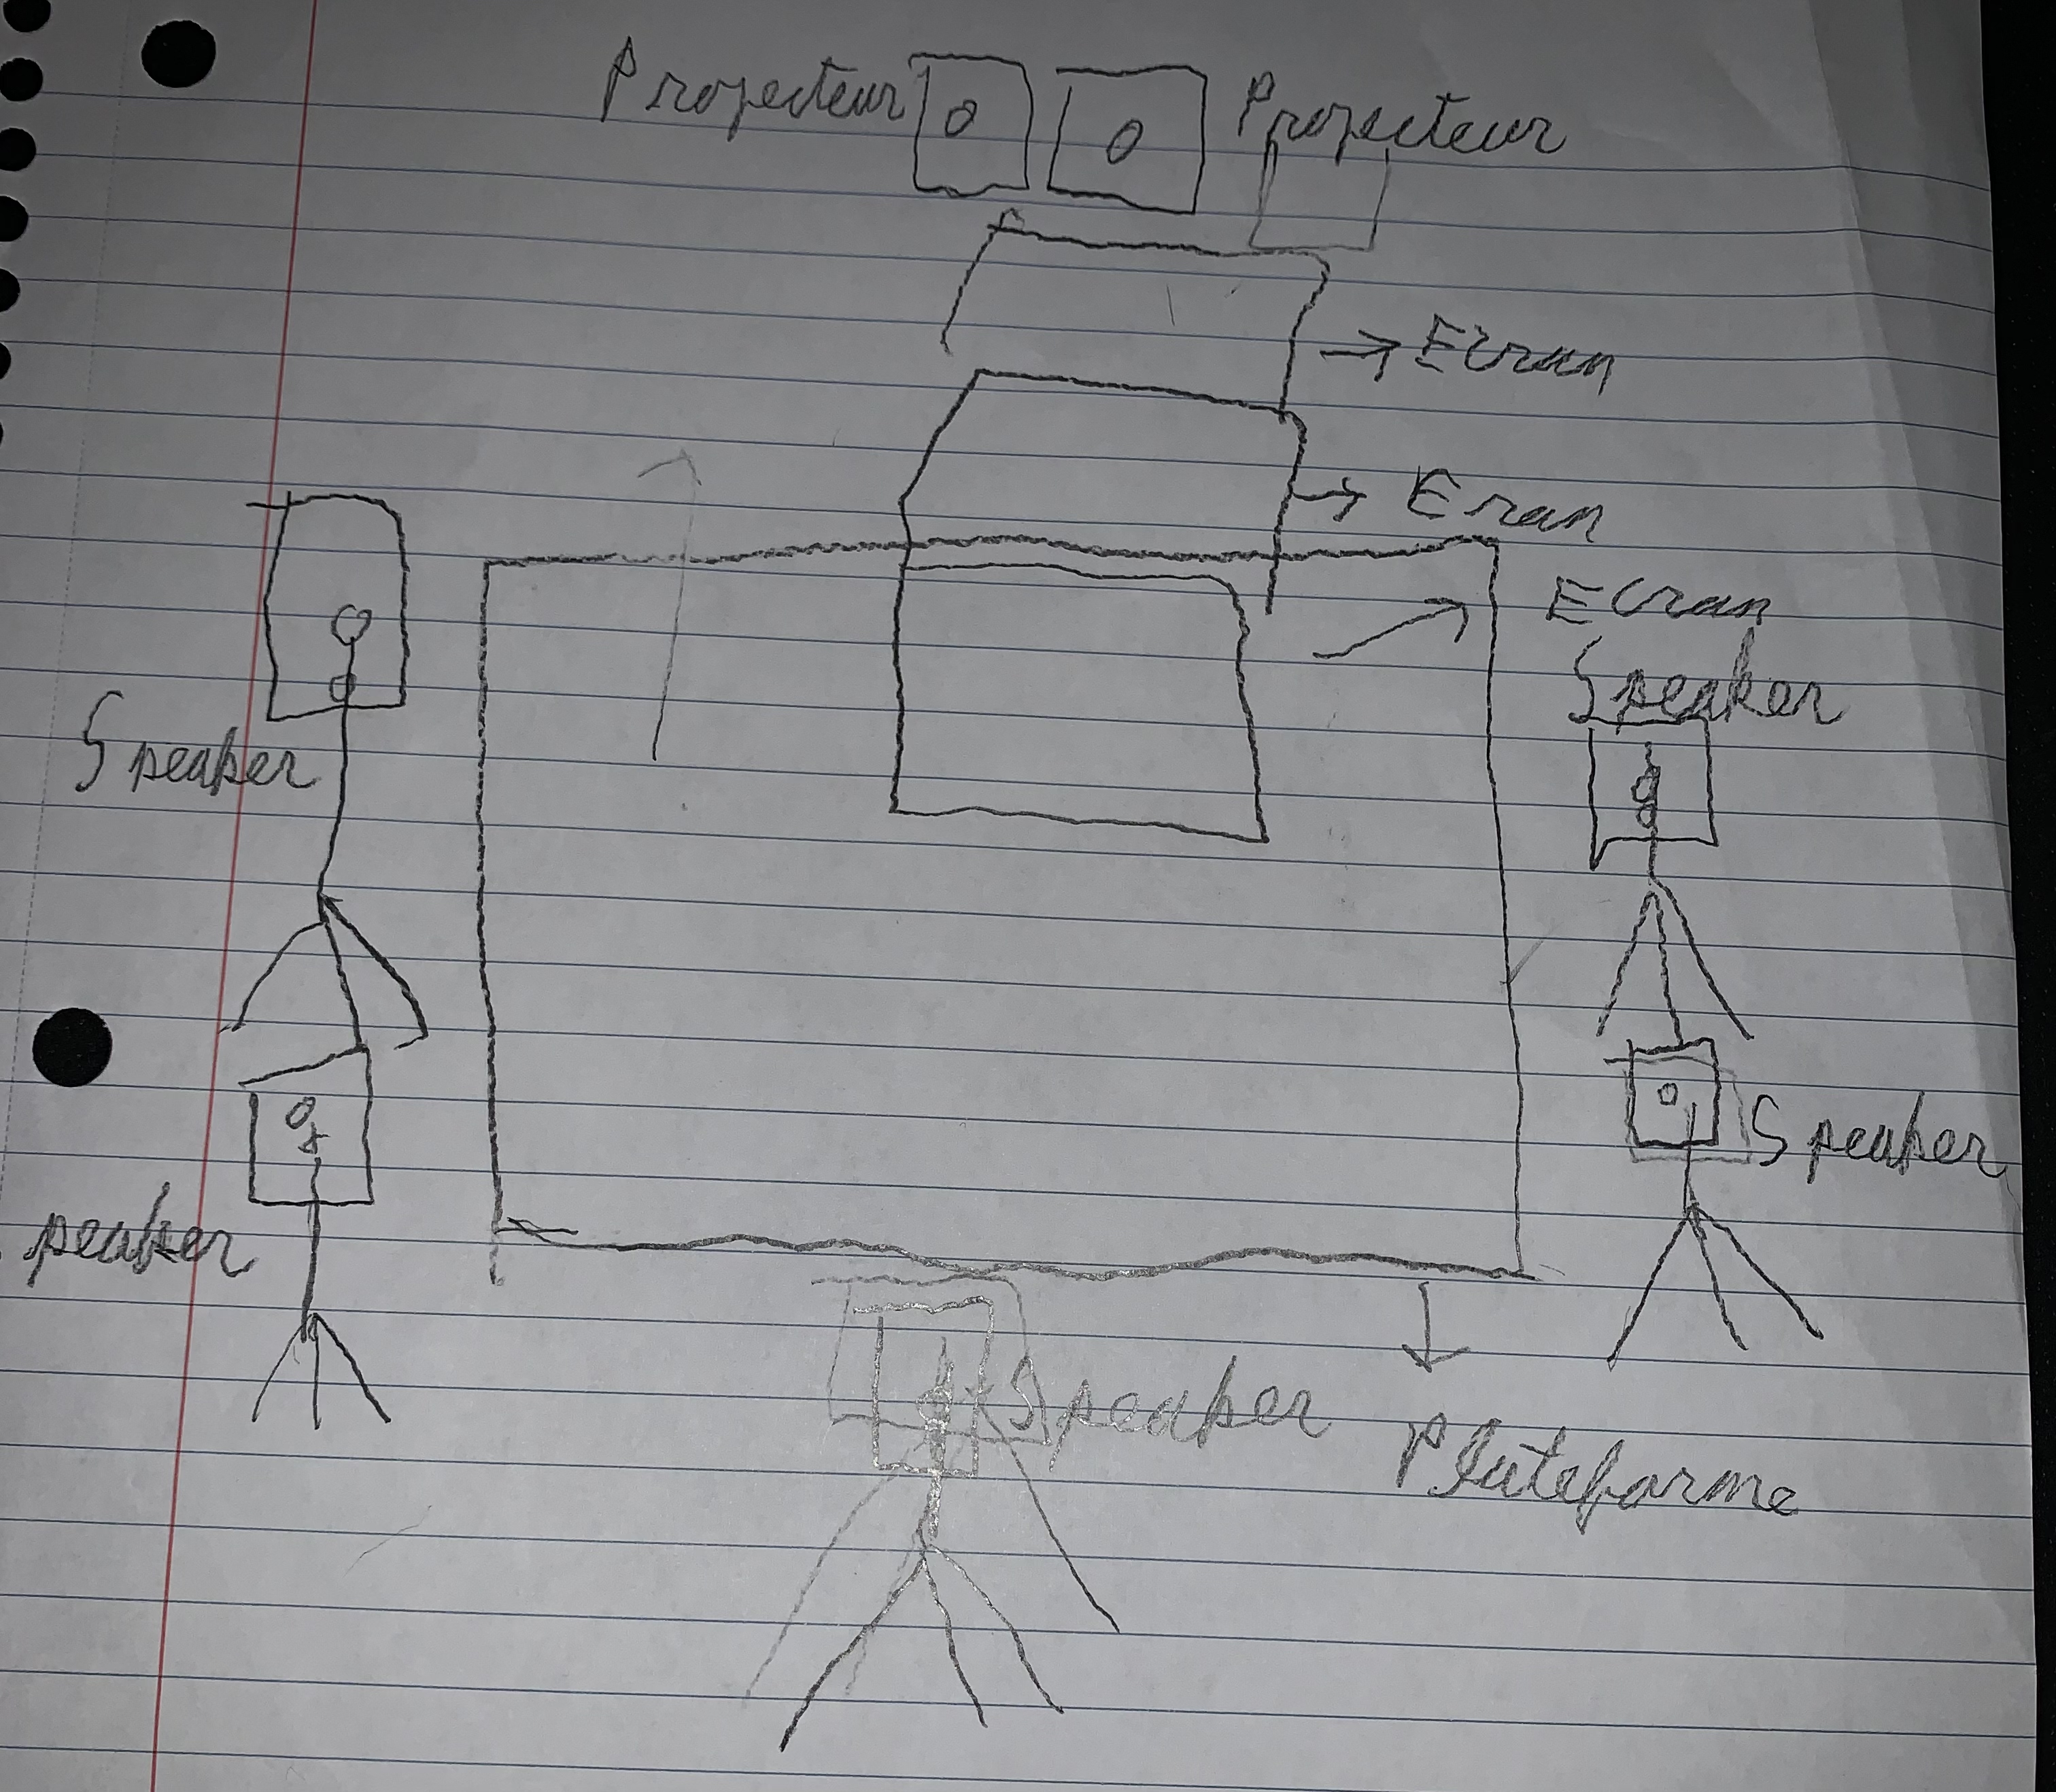 Projecteur Projecteur
Ecran
Eran
Ecran
Speaker
Speaker
Speaker
peaker
Speaker
Plateforme